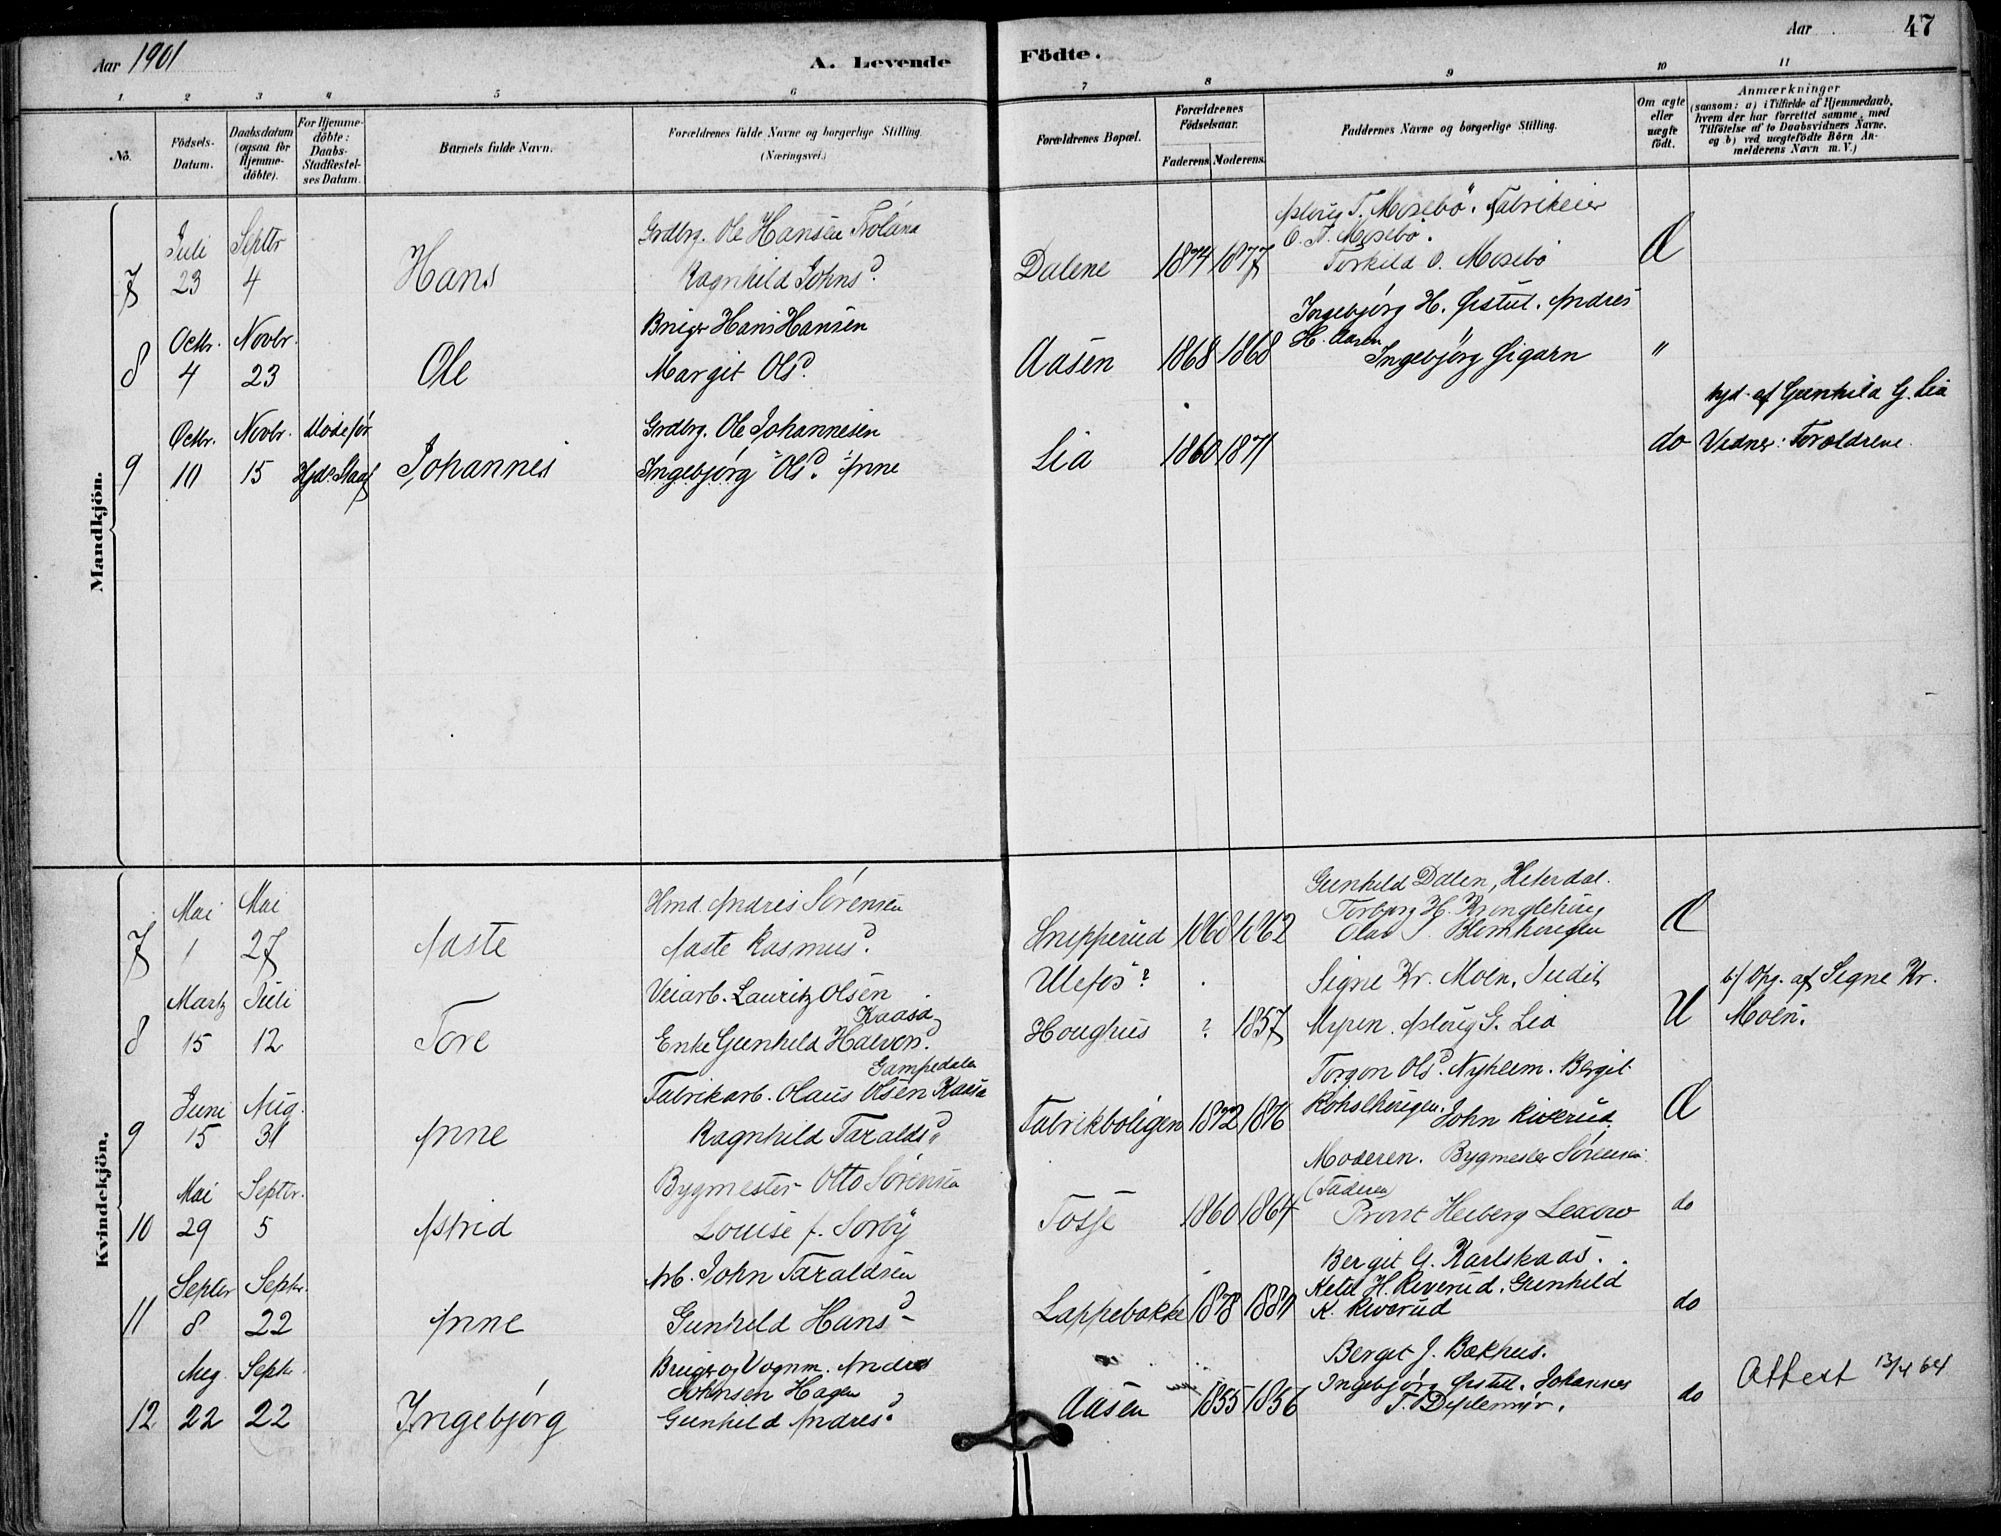 Aar 1901
A. Levende Födte.
Aar
47
1 2 3 4 5 6 7 8 9 10 11
No.
Födsels-Datum.
Daabsdatum (ogsaa for Hjemme-döbte).
For Hjemme-döbte: Daabs-Stadfæstel-ses Datum.
Barnets fulde Navn.
Forældrenes fulde Navne og borgerlige Stilling. (Næringsvei.)
Forældrenes Bopæl.
Forældrenes Födselsaar.
Faderens. Moderens.
Faddernes Navne og borgerlige Stilling.
Om ægte eller uægte födt.
Anmærkninger
(saasom: a) i Tilfælde af Hjemmedaab, hvem der har forrettet samme, med Tilföielse af to Daabsvidners Navne, og b) ved uægtefödte Börn An-melderens Navn m. V.)
Mandkjön.
Juli Septbr Grdbrg. Ole Hansen Aslaug T. Mosebö. Fabrikeier
O. T. Mosebö.
7 23 4 Hans Ragnhild Johnsd. Dalene 1874 1877 Torkild O. Mosebö Æ
Octbr. Novbr. Bruger Hans Hansen Ingebjørg H. Ørstul. Andres
H. Aasen
8 4 23 Ole Margit Olsd. Aasen 1868 1868 Ingebjørg "
Octbr. Novbr. Grdbrg. Ole Johannesen hjd. af Gunhild G. Lia
9 10 15 Johannes Ingebjørg Olsd. Anne Lia 1860 1871 do Vidner: Forældrene.
Kvindekjön.
Mai Mai Hmd. Andres Sörensen Gunhild Dalen, Hiterdal.
7 1 27 Aaste Aaste Rasmusd. Snepperud 1868 1862 Olav Æ
Martz Juli Veiarb. Lauritz Olsen Ulefos? Signe Kr. Moen, Judit b/ Opg. af Signe Kr.
Kaasa
8 15 12 Tore Enke Gunhild Halvorsd. Houghus ? 1857 Myren. Aslaug G. Lia U Moen.
Gampedalen
Juni Aug. Fabrikarb. Olaus Olsen Kaasa Torgon Olsd. Nyheim. Bergit
9 15 31 Anne Ragnhild Taraldsd. Fabrikboligen 1872 1876 John Riverud Æ
Mai Septbr. Bygmester Otto Sörensen Moderen. Bygmester Sörensen
(Faderen)
10 29 5 Astrid Louise f. Sorby Fosse 1860 1864 Provst Heiberg Lexow do
Septbr Septbr. Arb. John Taraldsen Bergit G. Karlskaas.
Ketil H. Riverud. Gunhild
11 8 22 Anne Gunhild Hansd. Lappebakke 1878 1880 K. Riverud do
Aug. Septbr Bruger og Vognm. Andres Bergit J. Bakhus.
Johnsen Hagen Ingebjörg Ørstul. Johannes
12 22 22 Ingebjørg Gunhild Andresd. Aasen 1855 1856 T. Diplemyr. do Attest 13/4 64